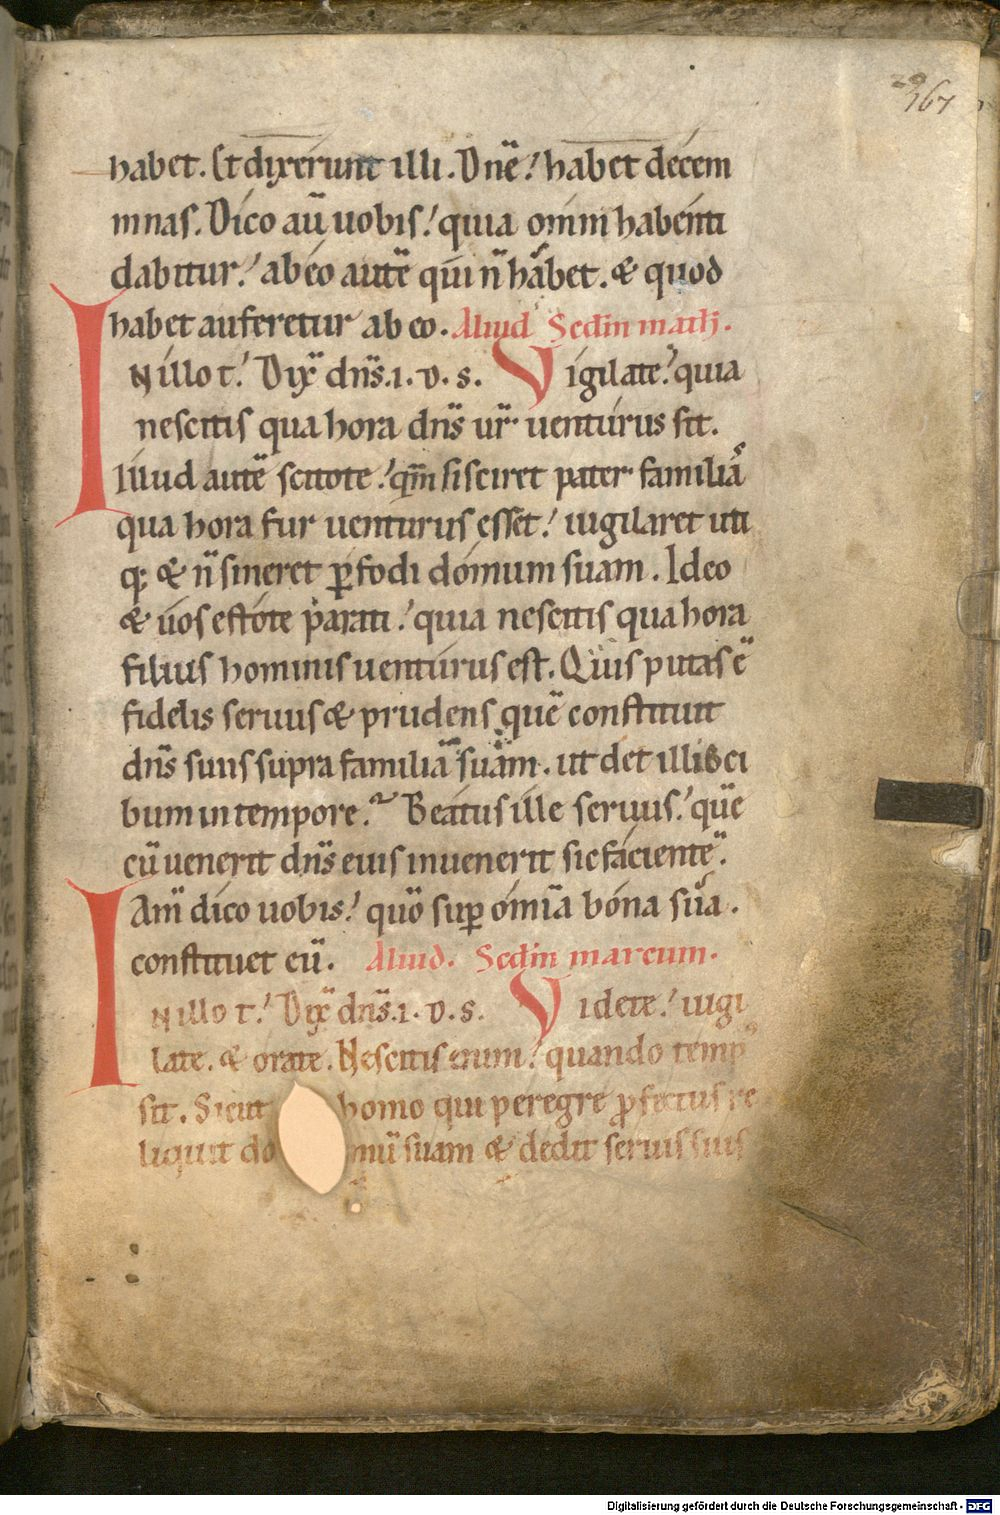 367
habet. Et dixerunt illi. Dn̄e! habet decem
mnas. Dico aū uobis! quia omni habenti
dabitur! ab eo autē qui n̄ habet. & quod
habet auferetur ab eo. Aliud Scdm math.
IN illo t! Dix̄ dn̄s. i. d. s. Vigilate! quia
nescitis qua hora dn̄s ur̄ uenturus sit.
Illud autē scitote! qm̄ si sciret pater familiā
qua hora fur uenturus esset! uigilaret uti
q; & n̄ sineret ꝑfodi domum suam. Ideo
& uos estote parati! quia nescitis qua hora
filius hominis uenturus est. Quis putas ē
fidelis seruus & prudens quē constituit
dn̄s suus supra familiā suam. ut det illis ci
bum in tempore? Beatus ille seruus! quē
cū uenerit dn̄s eius inuenerit sic facientē.
Am̄ dico uobis! quō suꝑ omīa bona sua.
constituet eū. Aliud. Scdm marcum.
IN illo t! Dix̄ dn̄s. i. d. s. Videte! uigi
late. & orate. Nescitis enim! quando temp᾽
sit. Sicut homo qui peregre ꝓfectus re
liquit domū suam & dedit seruis suis
Digitalisierung gefördert durch die Deutsche Forschungsgemeinschaft - DFG